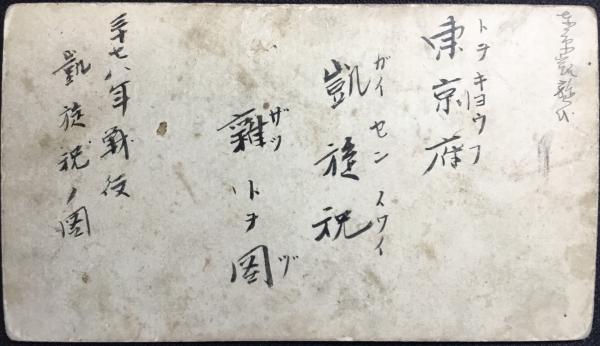 トヲキヨウフ
東京府
ガイセンイワイ
凱旋祝
ザツ ヅ
雜トヲ圖
三十七八年戰役
凱旋祝ノ圖